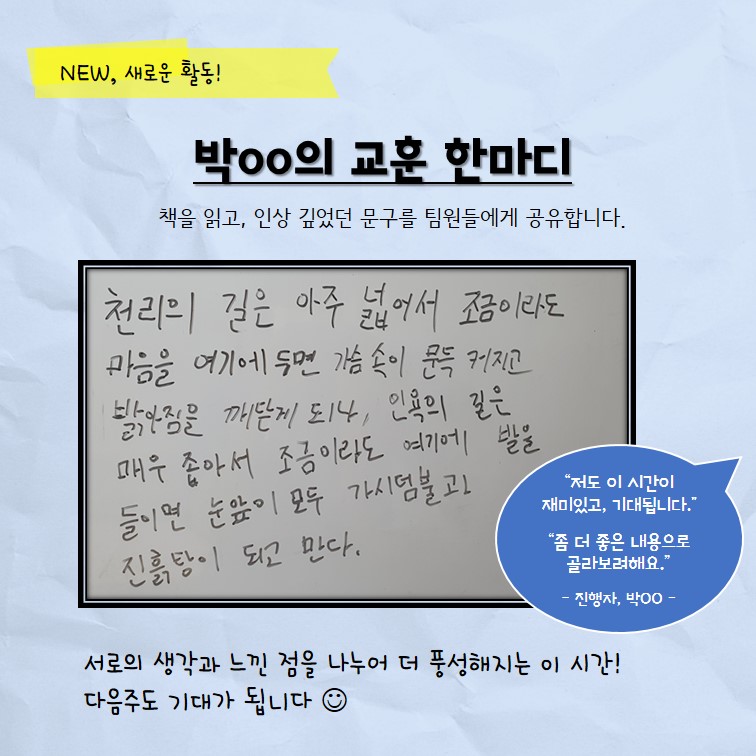 NEW, 새로운 활동!
박OO의 교훈 한마디
책을 읽고, 인상 깊었던 문구를 팀원들에게 공유합니다.
천리의 길은 아주 넓어서 조금이라도
마음을 여기에 두면 가슴 속이 문득 커지고
밝아짐을 깨닫게 되나, 인욕의 길은
매우 좁아서 조금이라도 여기에 발을
들이면 눈앞이 모두 가시덤불과
진흙탕이 되고 만다.
“저도 이 시간이
재미있고, 기대됩니다.”
“좀 더 좋은 내용으로
골라보려해요.”
- 진행자, 박OO -
서로의 생각과 느낀 점을 나누어 더 풍성해지는 이 시간!
다음주도 기대가 됩니다 ☺